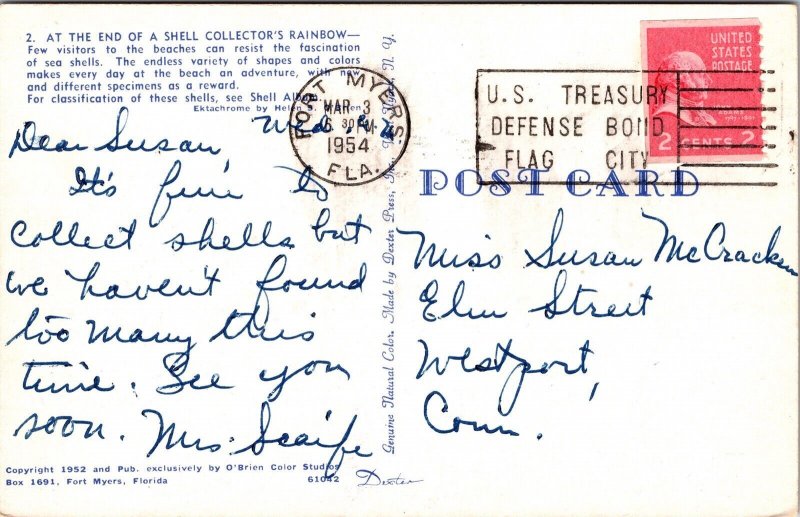 2. AT THE END OF A SHELL COLLECTOR'S RAINBOW—
Few visitors to the beaches can resist the fascination
of sea shells. The endless variety of shapes and colors
makes every day at the beach an adventure, with new
and different specimens as a reward.
For classification of these shells, see Shell Album.
Ektachrome by Helen S.
Dear Susan, Wed.
It's fun to
collect shells but
we haven't found
too many this
time. See you
soon. Mrs. Scaife
Copyright 1952 and Pub. exclusively by O'Brien Color Studios
Box 1691, Fort Myers, Florida
61042
Dexter
Genuine Natural Color. Made by Dexter Press, Inc. N. Y.
FORT MYERS.
MAR 3
30 PM
1954
FLA.
U.S. TREASURY
DEFENSE BOND
FLAG CITY
UNITED
STATES
POSTAGE
ADAMS
2 CENTS 2
POST CARD
Miss Susan McCracken
Elm Street
Westport,
Conn.